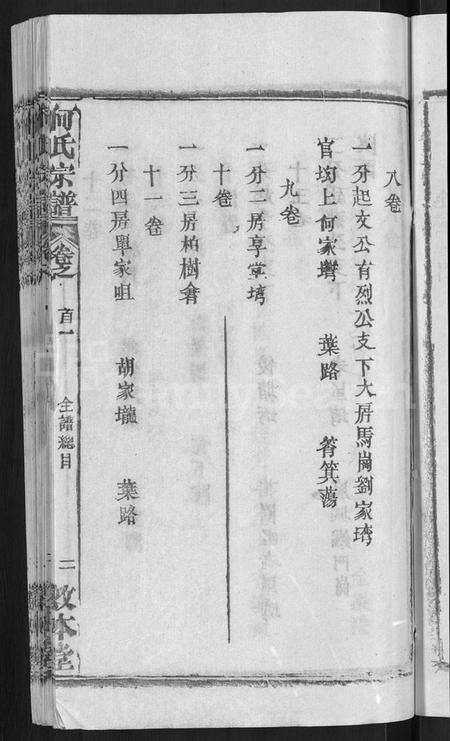 八卷
一分起文公有烈公支下大房馬崗劉家塆
官塆上何家塆 葉路 筲箕蕩
九卷
一分二房享堂塆
十卷
一分三房柏樹會
十一卷
一分四房單家咀 胡家壠 葉路
何氏宗譜 卷之首一 全譜總目 二 敦本堂